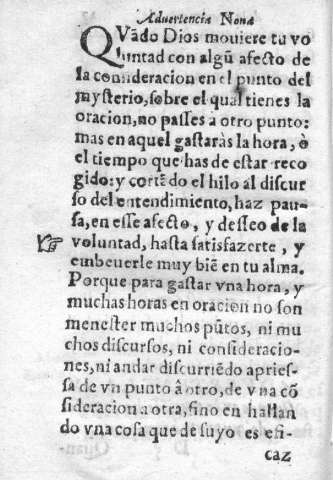 Aduertencia Nona
QVãdo Dios mouiere tu vo
luntad con algũ afecto de
la consideracion en el punto del
mysterio, sobre el qual tienes la
oracion, no passes a otro punto:
mas en aquel gastaràs la hora, ò
el tiempo que has de estar reco
gido: y cortẽdo el hilo al discur
so del entendimiento, haz pau-
sa, en esse afecto, y desseo de la
☞ voluntad, hasta satisfazerte, y
embeuerle muy biẽ en tu alma.
Porque para gastar vna hora, y
muchas horas en oracion no son
menester muchos pũtos, ni mu
chos discursos, ni consideracio-
nes, ni andar discurriẽdo apries-
sa de vn punto â otro, de vna cõ
sideracion a otra, sino en hallan
do vna cosa que de suyo es efi-
caz